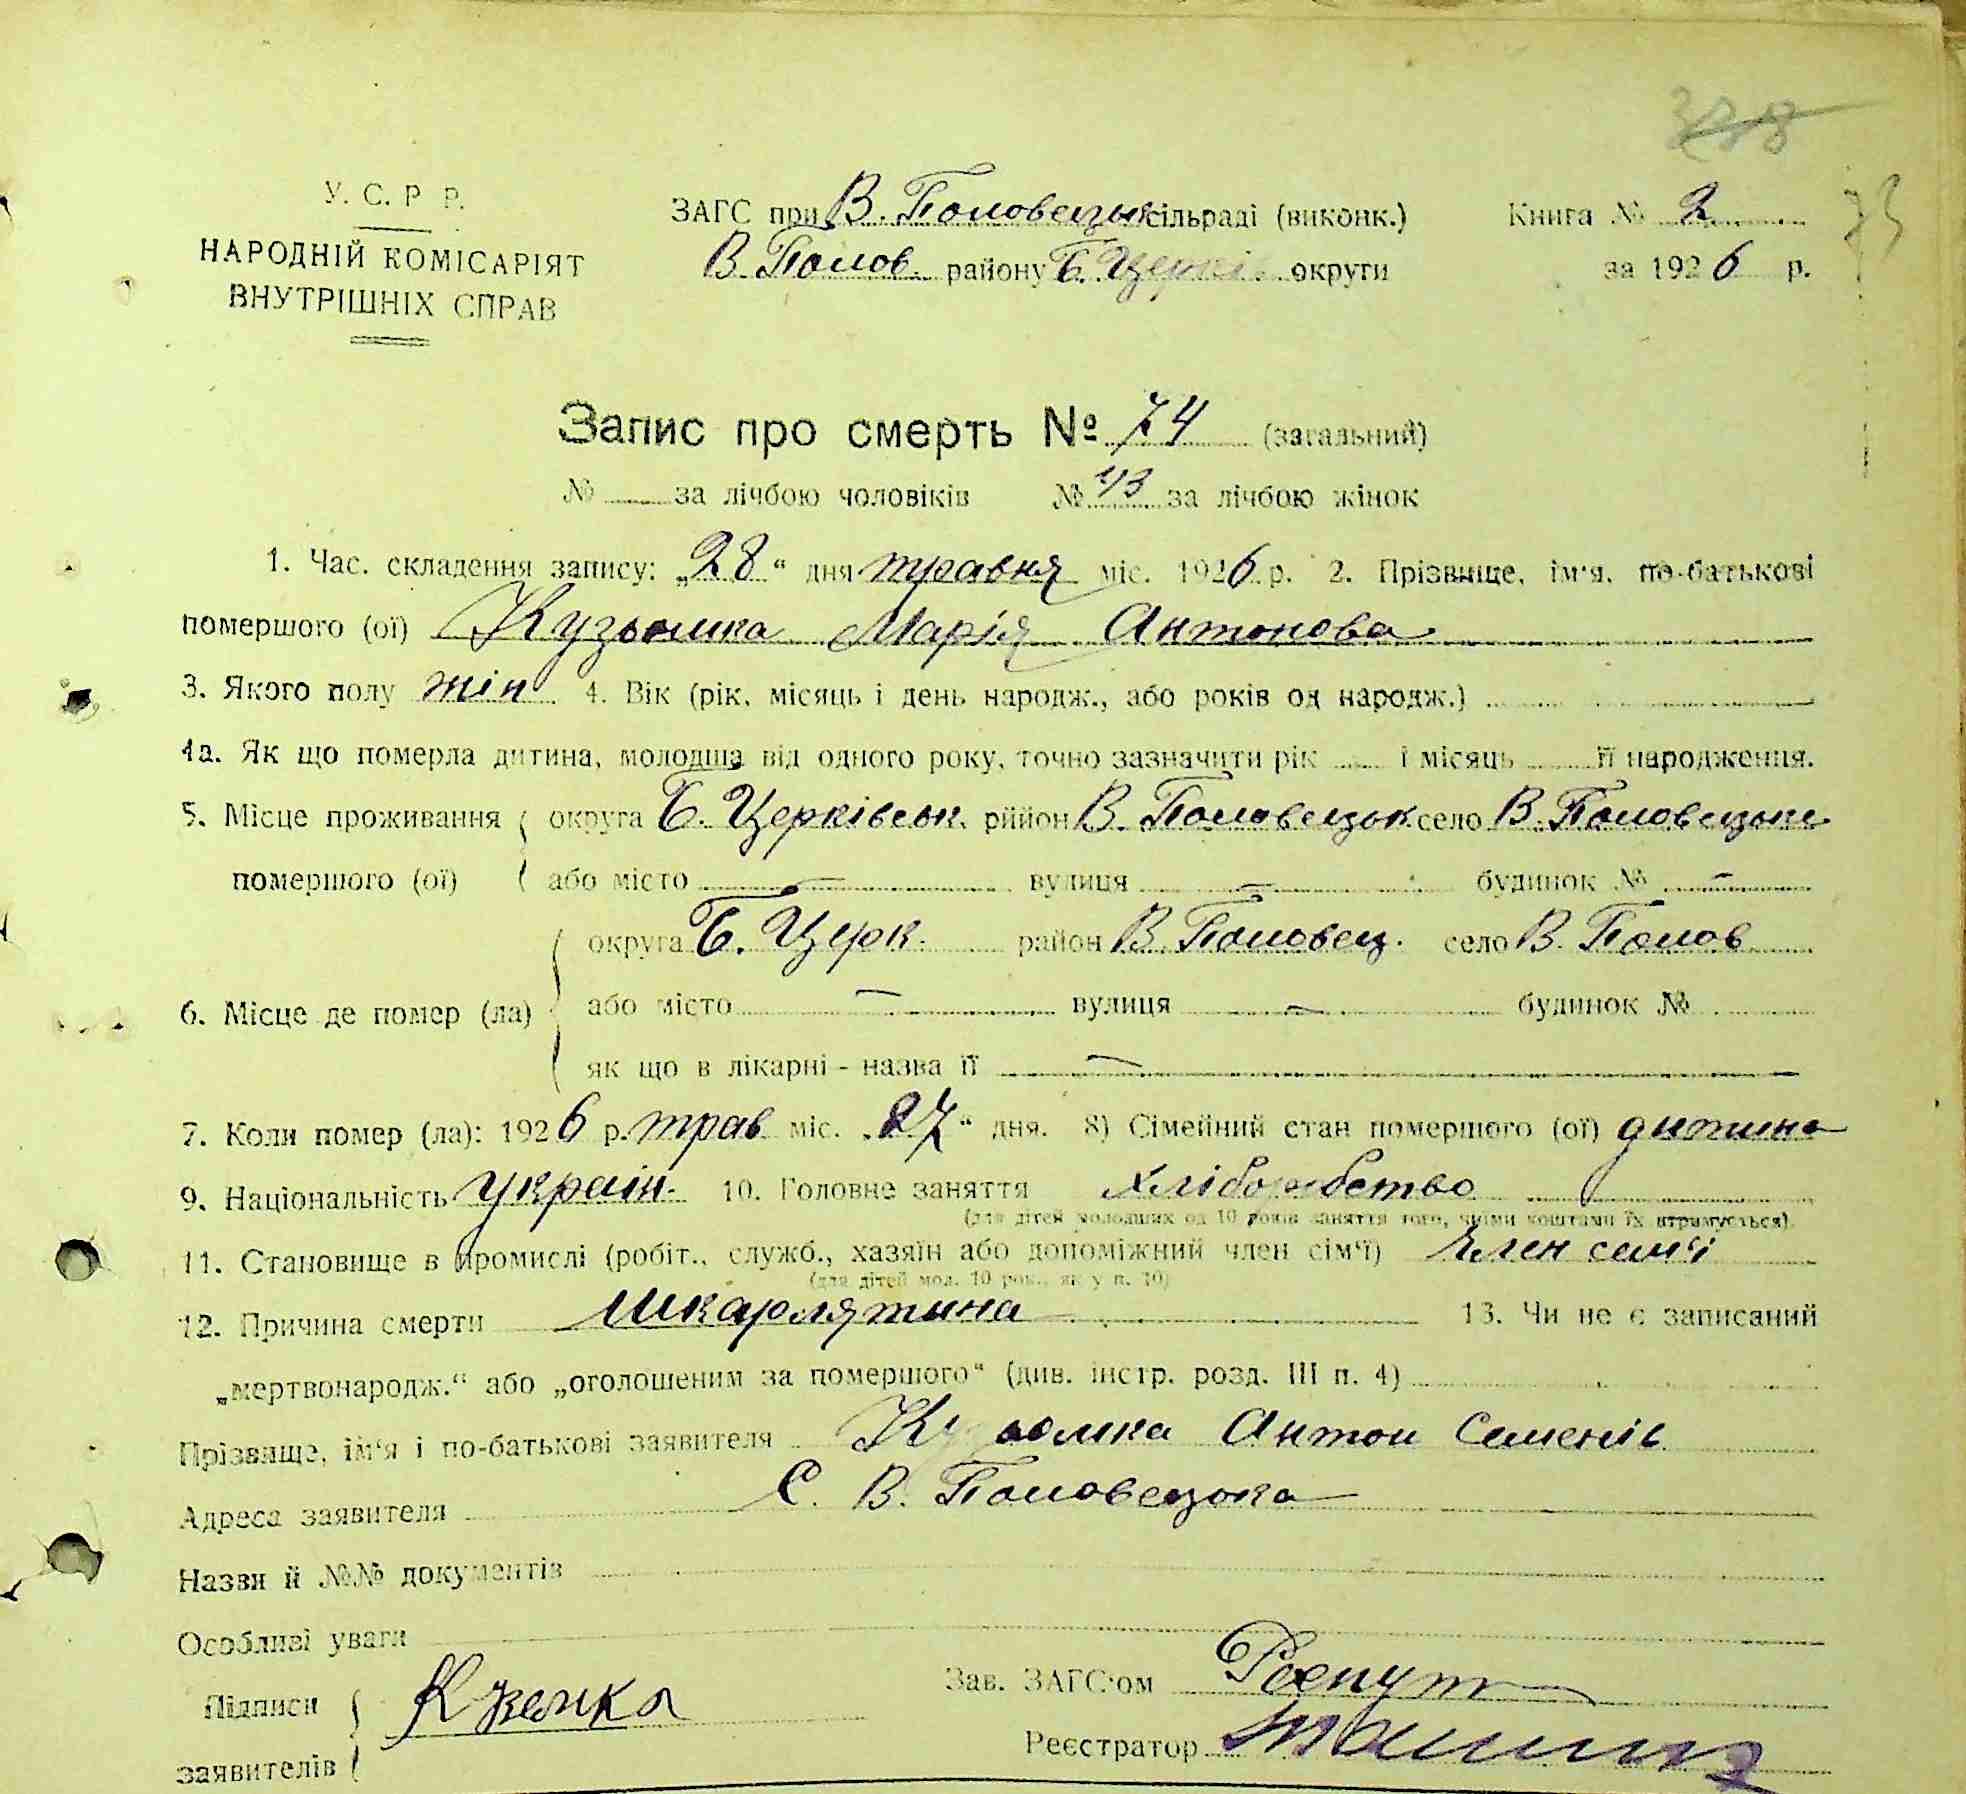 378
73
У. С. Р Р.
НАРОДНІЙ КОМІСАРІЯТ
ВНУТРІШНІХ СПРАВ
ЗАГС при В. Половецьк сільраді (виконк.)
В. Полов. району Б. Церків округи
Книга № 2
за 1926 р.
Запис про смерть № 74 (загальний)
№ за лічбою чоловіків № 43 за лічбою жінок
1. Час. складення запису: „28“ дня травня міс. 1926 р. 2. Прізвище, ім'я, по-батькові
помершого (ої) Кузьомка Марія Антонова
3. Якого полу жін 4. Вік (рік, місяць і день народж., або років од народж.)
4а. Як що померла дитина, молодша від одного року, точно зазначити рік і місяць її народження.
5. Місце проживання округа Б. Церківськ. рййон В. Половецьк. село В. Половецьке
помершого (ої) або місто — вулиця — будинок № —
округа Б. Церк. район В. Половец. село В. Полов
6. Місце де помер (ла) або місто — вулиця — будинок №
як що в лікарні - назва її —
7. Коли помер (ла): 1926 р. трав міс. „27“ дня. 8) Сімейний стан помершого (ої) дитина
9. Національність україн. 10. Головне заняття хліборобство
(для дітей молодших од 10 років заняття того, чиїми коштами їх втримується).
11. Становище в промислі (робіт., служб., хазяїн або допоміжний член сім'ї) Член сем'ї
(для дітей мол. 10 рок., як у п. 10)
12. Причина смерти шкарлятина 13. Чи не є записаний
„мертвонародж.“ або „оголошеним за помершого“ (див. інстр. розд. III п. 4)
Прізвище, ім'я і по-батькові заявителя Кузьомка Антон Семенів
Адреса заявителя С. В. Половецька
Назви й №№ документів
Особливі уваги
Підписи Зав. ЗАГС'ом
заявителів Реєстратор